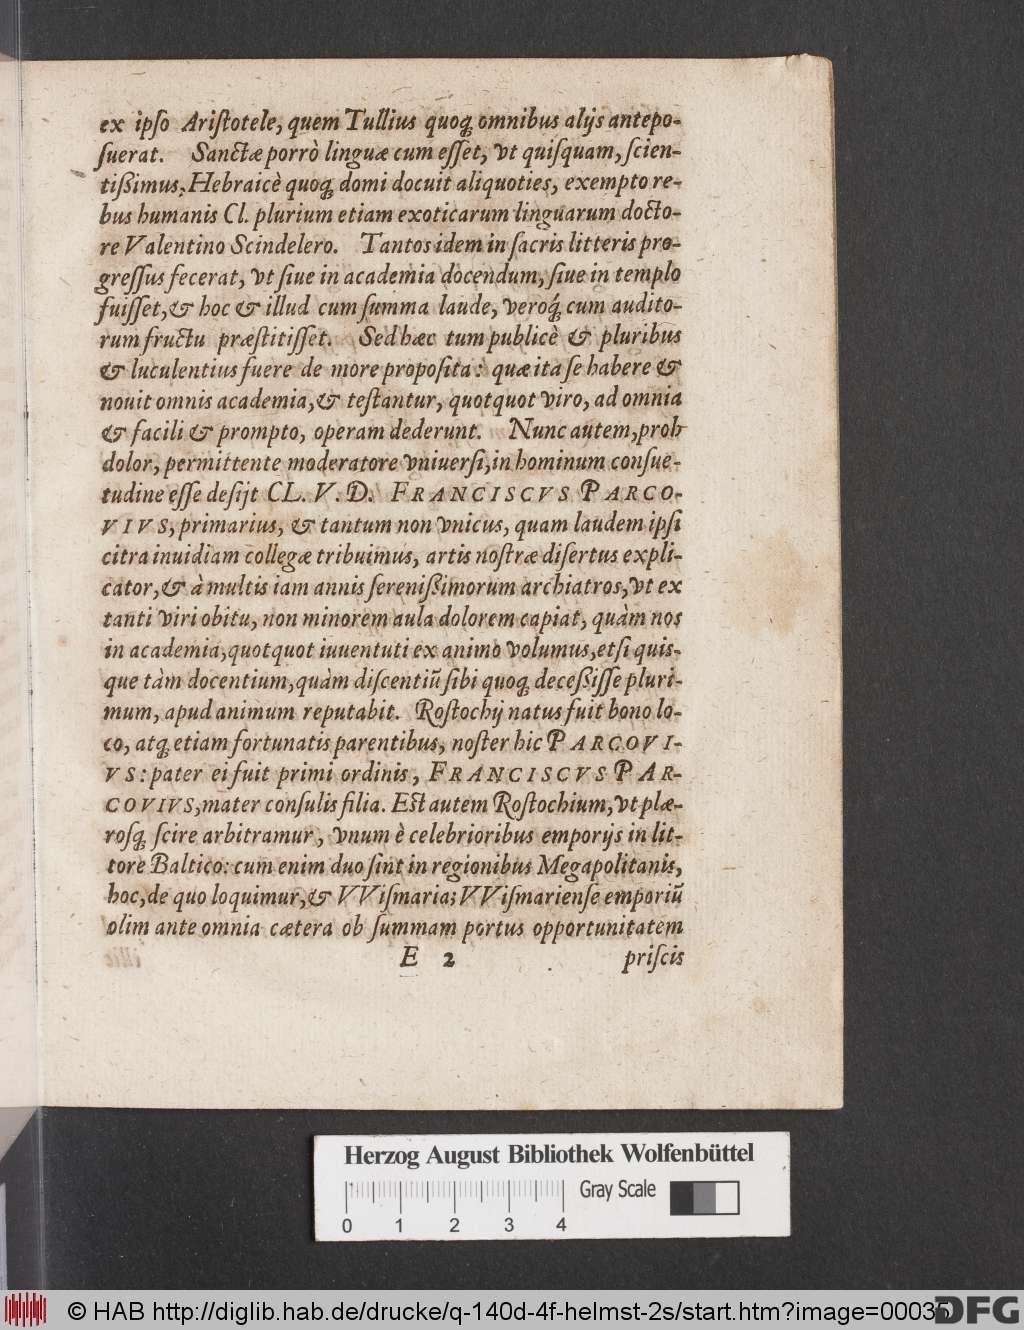 ex ipſo Ariſtotele, quem Tullius quoq́; omnibus alijs antepo-
ſuerat. Sanctæ porrò linguæ cum eſſet, vt quiſquam, ſcien-
tißimus, Hebraicè quoq́; domi docuit aliquoties, exempto re-
bus humanis Cl. plurium etiam exoticarum linguarum docto-
re Valentino Scindelero. Tantos idem in ſacris litteris pro-
greſſus fecerat, vt ſiue in academia docendum, ſiue in templo
fuiſſet, & hoc & illud cum ſumma laude, veroq́; cum audito-
rum fructu præſtitiſſet. Sed hæc tum publicè & pluribus
& luculentius fuere de more propoſita: quæ ita ſe habere &
nouit omnis academia, & teſtantur, quotquot viro, ad omnia
& facili & prompto, operam dederunt. Nunc autem, proh
dolor, permittente moderatore vniuerſi, in hominum conſue-
tudine eſſe deſijt CL. V. D. FRANCISCVS PARCO-
VIVS, primarius, & tantum non vnicus, quam laudem ipſi
citra inuidiam collegæ tribuimus, artis noſtræ diſertus expli-
cator, & à multis iam annis ſerenißimorum archiatros, vt ex
tanti viri obitu, non minorem aula dolorem capiat, quàm nos
in academia, quotquot iuuentuti ex animo volumus, etſi quis-
que tàm docentium, quàm diſcentiũ ſibi quoq́; deceßiſſe pluri-
mum, apud animum reputabit. Roſtochij natus fuit bono lo-
co, atq́; etiam fortunatis parentibus, noſter hic PARCOVI-
VS: pater ei fuit primi ordinis, FRANCISCVS PAR-
COVIVS, mater conſulis filia. Eſt autem Roſtochium, vt plæ-
roſq́; ſcire arbitramur, vnum è celebrioribus emporijs in lit-
tore Baltico: cum enim duo ſint in regionibus Megapolitanis,
hoc, de quo loquimur, & VViſmaria; VViſmarienſe emporiũ
olim ante omnia cætera ob ſummam portus opportunitatem
E 2 priſcis
Herzog August Bibliothek Wolfenbüttel
Gray Scale
0 1 2 3 4
© HAB http://diglib.hab.de/drucke/q-140d-4f-helmst-2s/start.htm?image=00035
DFG